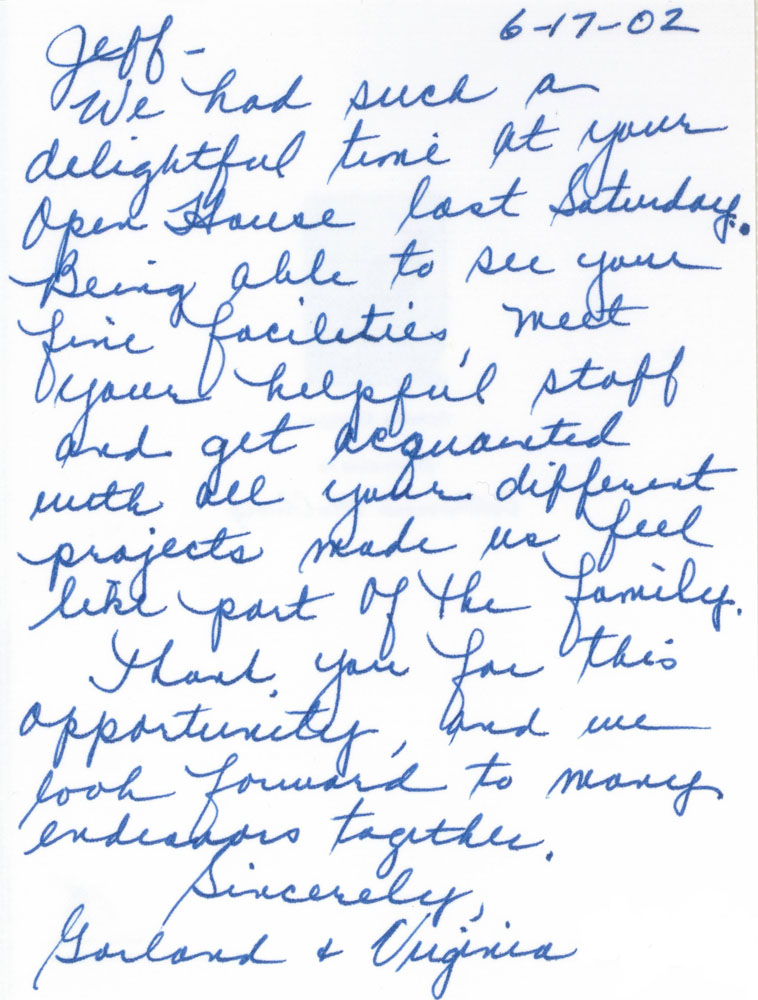 6-17-02
Jeff-
We had such a
delightful time at your
Open House last Saturday.
Being able to see your
fine facilities, meet
your helpful staff
and get acquanted
with all your different
projects made us feel
like part of the family.
Thank you for this
opportunity, and we
look forward to many
endeavors together.
Sincerely,
Garland & Virginia